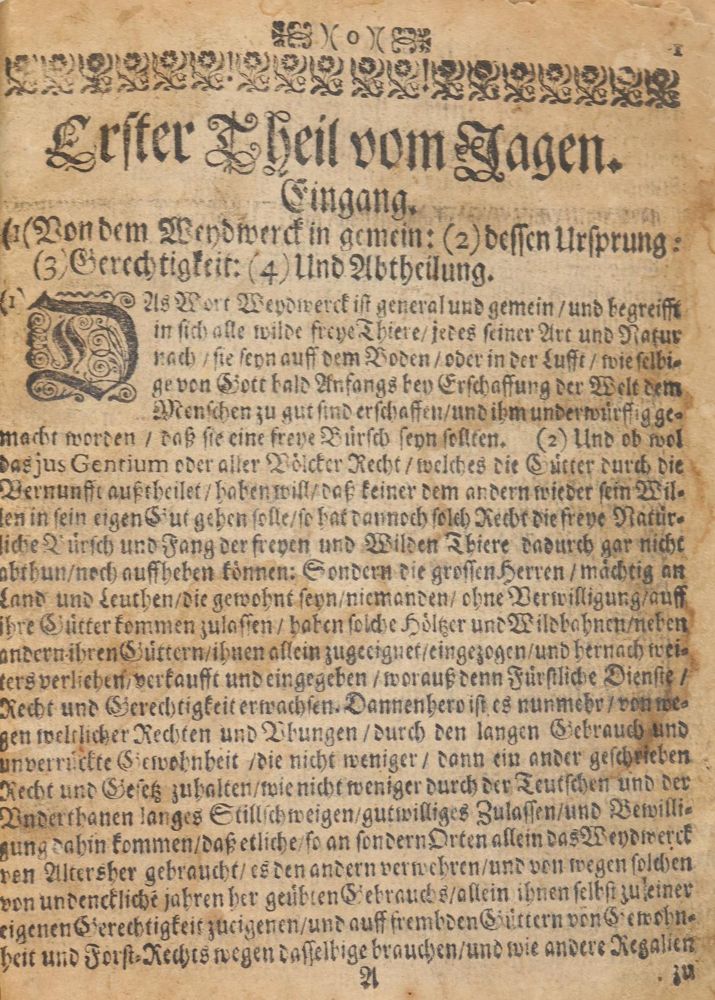 )( o )(
1
Erster Theil vom Jagen.
Eingang.
(1(Von dem Weydwerck in gemein: (2) dessen Ursprung:
(3) Gerechtigkeit: (4) Und Abtheilung.
(1) DAs Wort Weydwerck ist general und gemein / und begreifft
in sich alle wilde freye Thiere / jedes seiner Art und Natur
nach / sie seyn auff dem Boden / oder in der Lufft / wie selbi-
ge von Gott bald Anfangs bey Erschaffung der Welt dem
Menschen zu gut sind erschaffen / und ihm underwürffig ge-
macht worden / daß sie eine freye Bürsch seyn sollten. (2) Und ob wol
das jus Gentium oder aller Völcker Recht / welches die Gütter durch die
Vernunfft außtheilet / haben will / daß keiner dem andern wieder sein Wil-
len in sein eigen Gut gehen solle / so hat dannoch solch Recht die freye Natür-
liche Bürsch und Fang der freyen und Wilden Thiere dadurch gar nicht
abthun / noch auffheben können: Sondern die grossen Herren / mächtig an
Land und Leuthen / die gewohnt seyn / niemanden / ohne Verwilligung / auff
ihre Gütter kommen zulassen / haben solche Höltzer und Wildbahnen / neben
andern ihren Güttern / ihnen allein zugeeignet / eingezogen / und hernach wei-
ters verliehen / verkaufft und eingegeben / worauß denn Fürstliche Dienste /
Recht und Gerechtigkeit erwachsen. Dannenhero ist es nunmehr / von we-
gen weltlicher Rechten und Vbungen / durch den langen Gebrauch und
unverrückte Gewohnheit / die nicht weniger / dann ein ander geschrieben
Recht und Gesetz zuhalten / wie nicht weniger durch der Teutschen und der
Vnderthanen langes Stillschweigen / gutwilliges Zulassen / und Bewilli-
gung dahin kommen / daß etliche / so an sondern Orten allein das Weydwerck
von Alters her gebraucht / es den andern verwehren / und von wegen solchen
von undencklichē jahren her geübten Gebrauchs / allein ihnen selbst zu einer
eigenen Gerechtigkeit zueigenen / und auff frembden Güttern von Gewohn-
heit und Forst-Rechts wegen dasselbige brauchen / und wie andere Regalien
A
zu